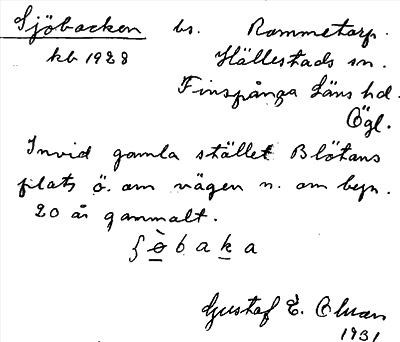 Sjöbacken bs. Rammetorp.
kb 1928 Hällestads sn.
Finspånga Läns hd.
Ögl.
Invid gamla stället Blötans
plats ö. om vägen n. om begn.
20 år gammalt.
ʃö̀baka
Gustaf E.
1931